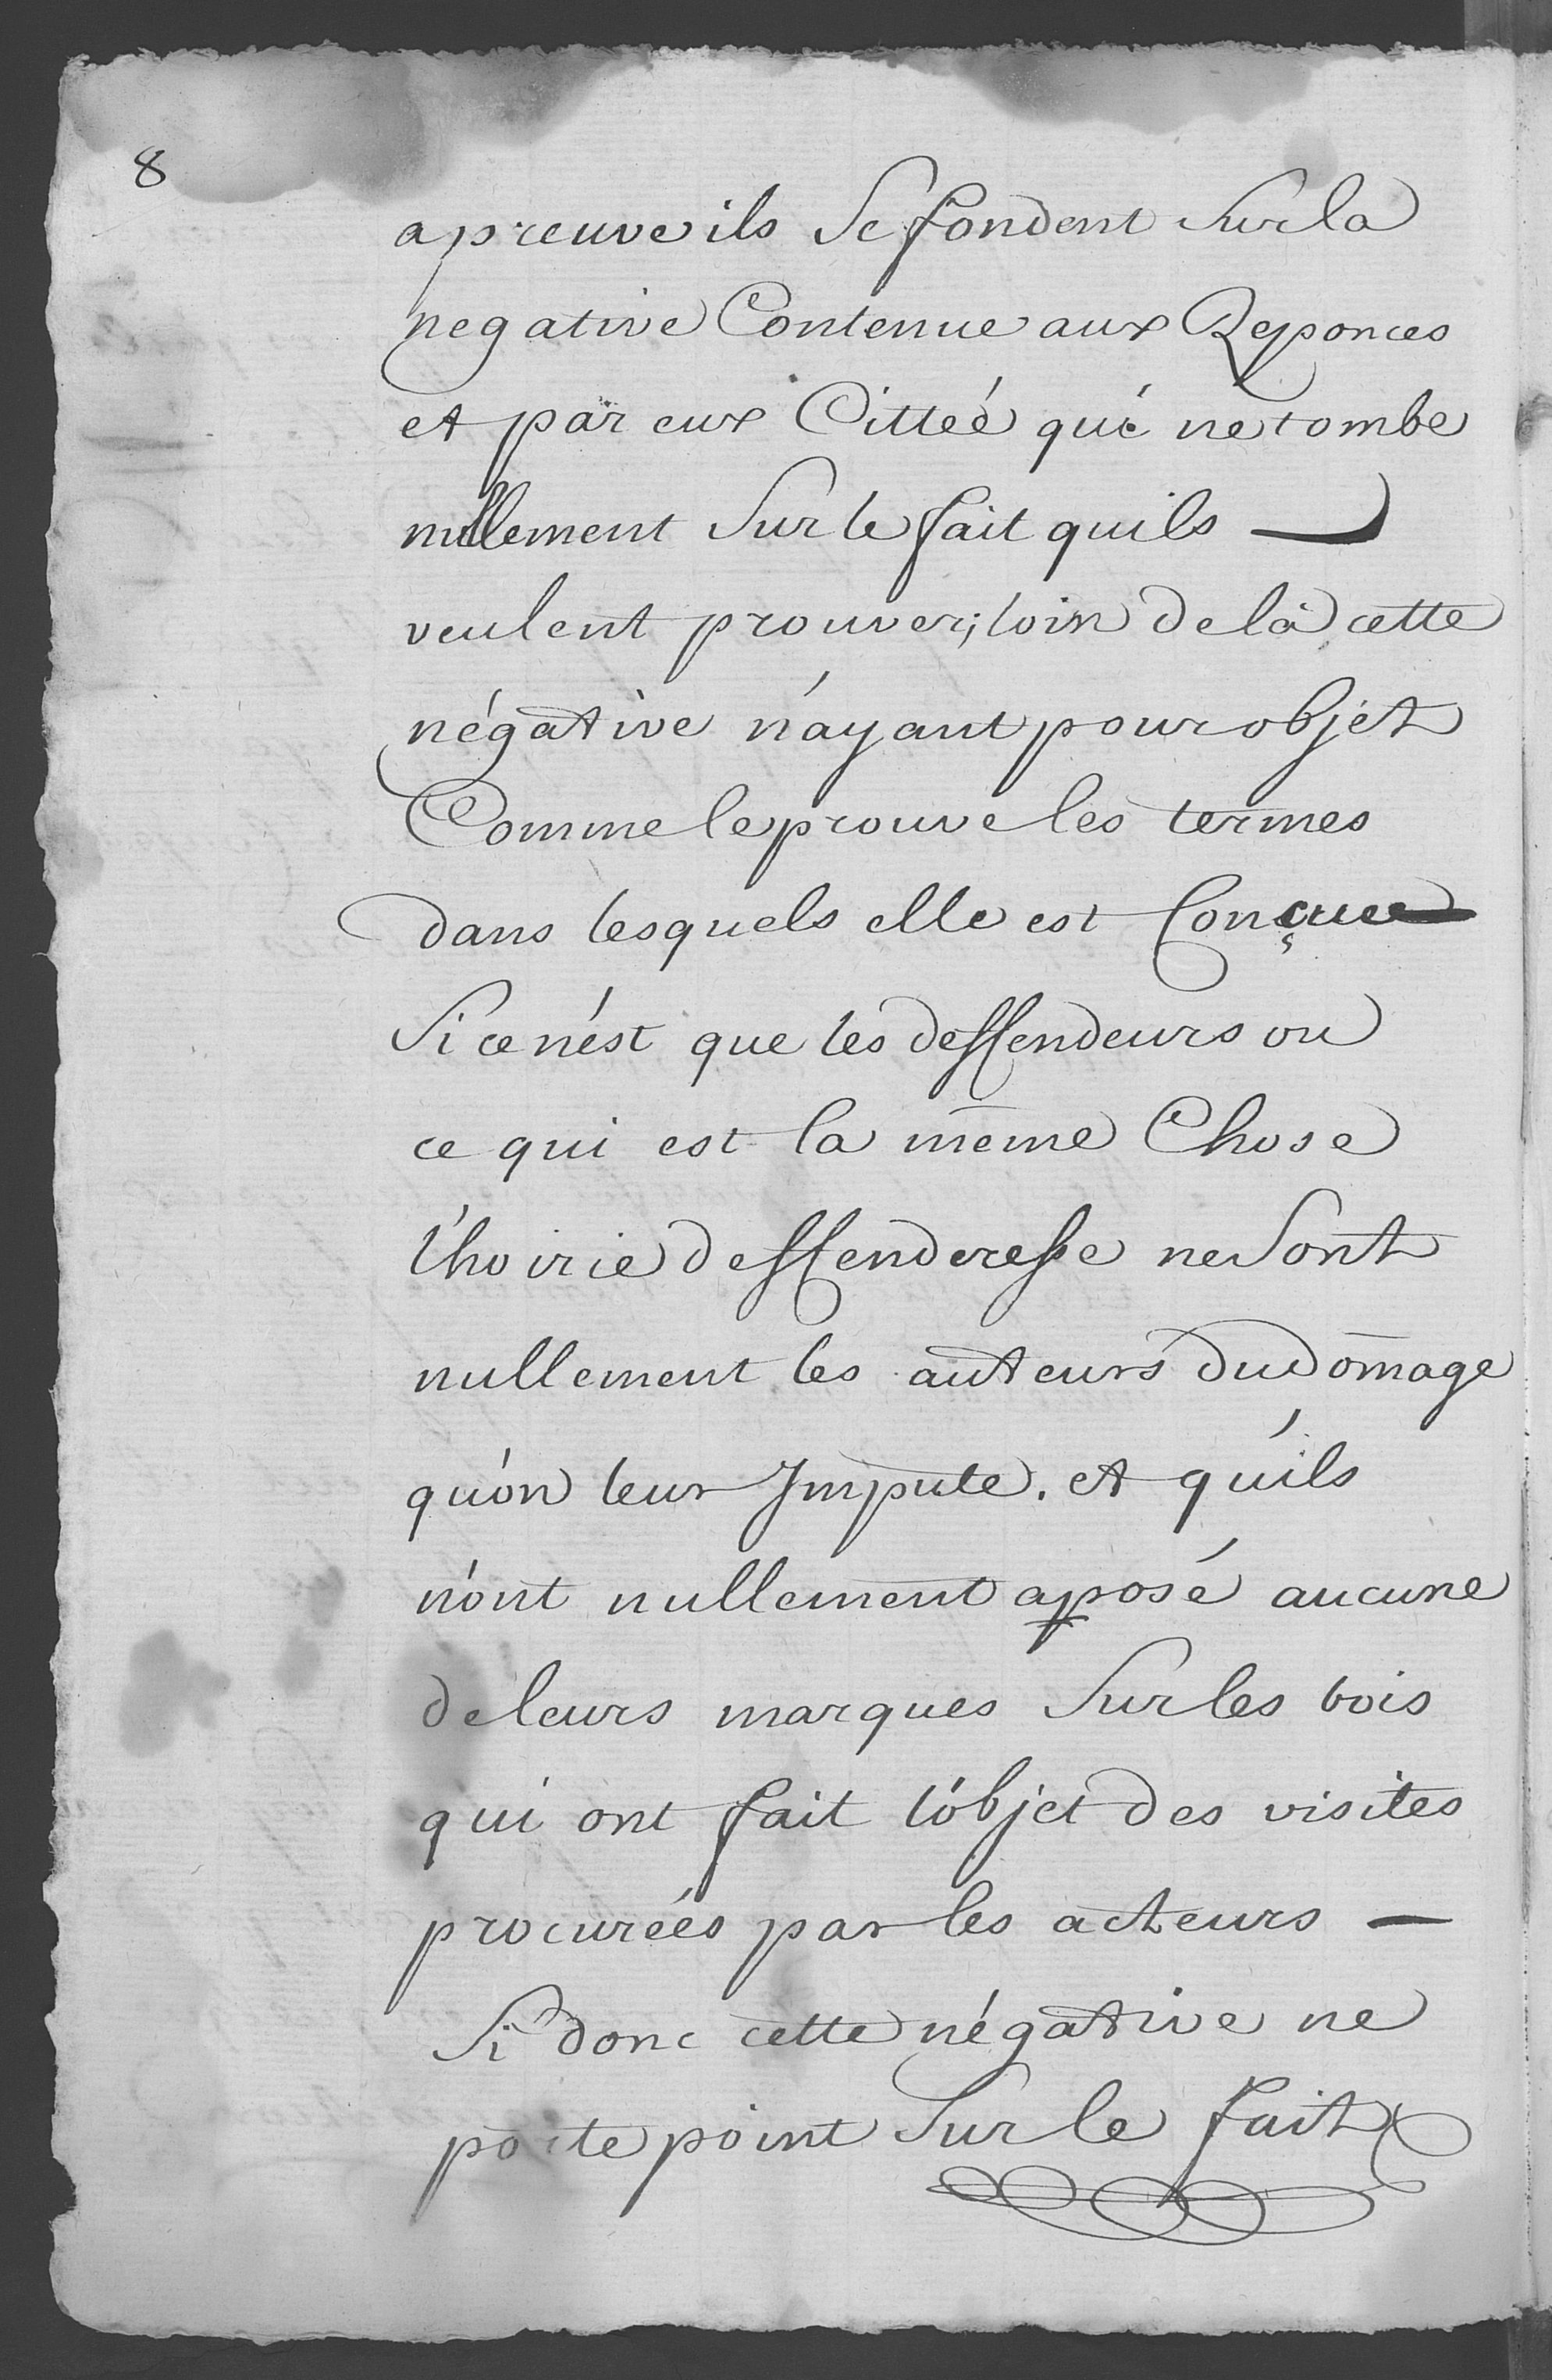 8
apreuve ils Se fondent Sur la
negative Contenue aux Reponces
et par eux Cittéé qui ne tombe
nullement Sur le fait quils
veulent prouver; loin de là cette
négative n'ayant pour objet
Comme le prouve les termes
dans lesquels elle est Conçue
Si ce n'ést que les deffendeurs ou
ce qui est la méme Chose
l'hoirie deffenderesse ne Sont
nullement les auteurs du domage
qu'on leur Impute. et qu'ils
n'ont nullement aposé aucune
de leurs marques Sur les bois
qui ont fait l'objet des visites
procuréés par les acteurs —
Si donc cette négative ne
porte point Sur le fait